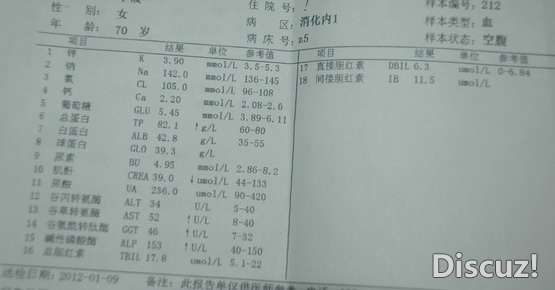 性 别: 女
年 龄: 70 岁
住 院 号:
病 区: 消化内1
病 床 号: z5
样本编号: 212
样本类型: 血
样本状态: 空腹
项目 结果 单位 参考值
1 钾 K 3.90 mmol/L 3.5-5.3
2 钠 Na 142.0 mmol/L 136-145
3 氯 CL 105.0 mmol/L 96-108
4 钙 Ca 2.20 mmol/L 2.08-2.6
5 葡萄糖 GLU 5.45 mmol/L 3.89-6.11
6 总蛋白 TP 82.1 ↑ g/L 60-80
7 白蛋白 ALB 42.8 g/L 35-55
8 球蛋白 GLO 39.3 g/L
9 尿素 BU 4.95 mmol/L 2.86-8.2
10 肌酐 CREA 39.0 ↓ umol/L 44-133
11 尿酸 UA 236.0 umol/L 90-420
12 谷丙转氨酶 ALT 34 U/L 5-40
13 谷草转氨酶 AST 52 ↑ U/L 8-40
14 谷氨酰转肽酶 GGT 46 ↑ U/L 7-32
15 碱性磷酸酶 ALP 153 ↑ U/L 40-150
16 总胆红素 TBIL 17.8 umol/L 5.1-22
项目 结果 单位 参考值
17 直接胆红素 DBIL 6.3 umol/L 0-6.84
18 间接胆红素 IB 11.5 umol/L
送检日期: 2012-01-09
备注: 此报告单仅供医师参考
Discuz!